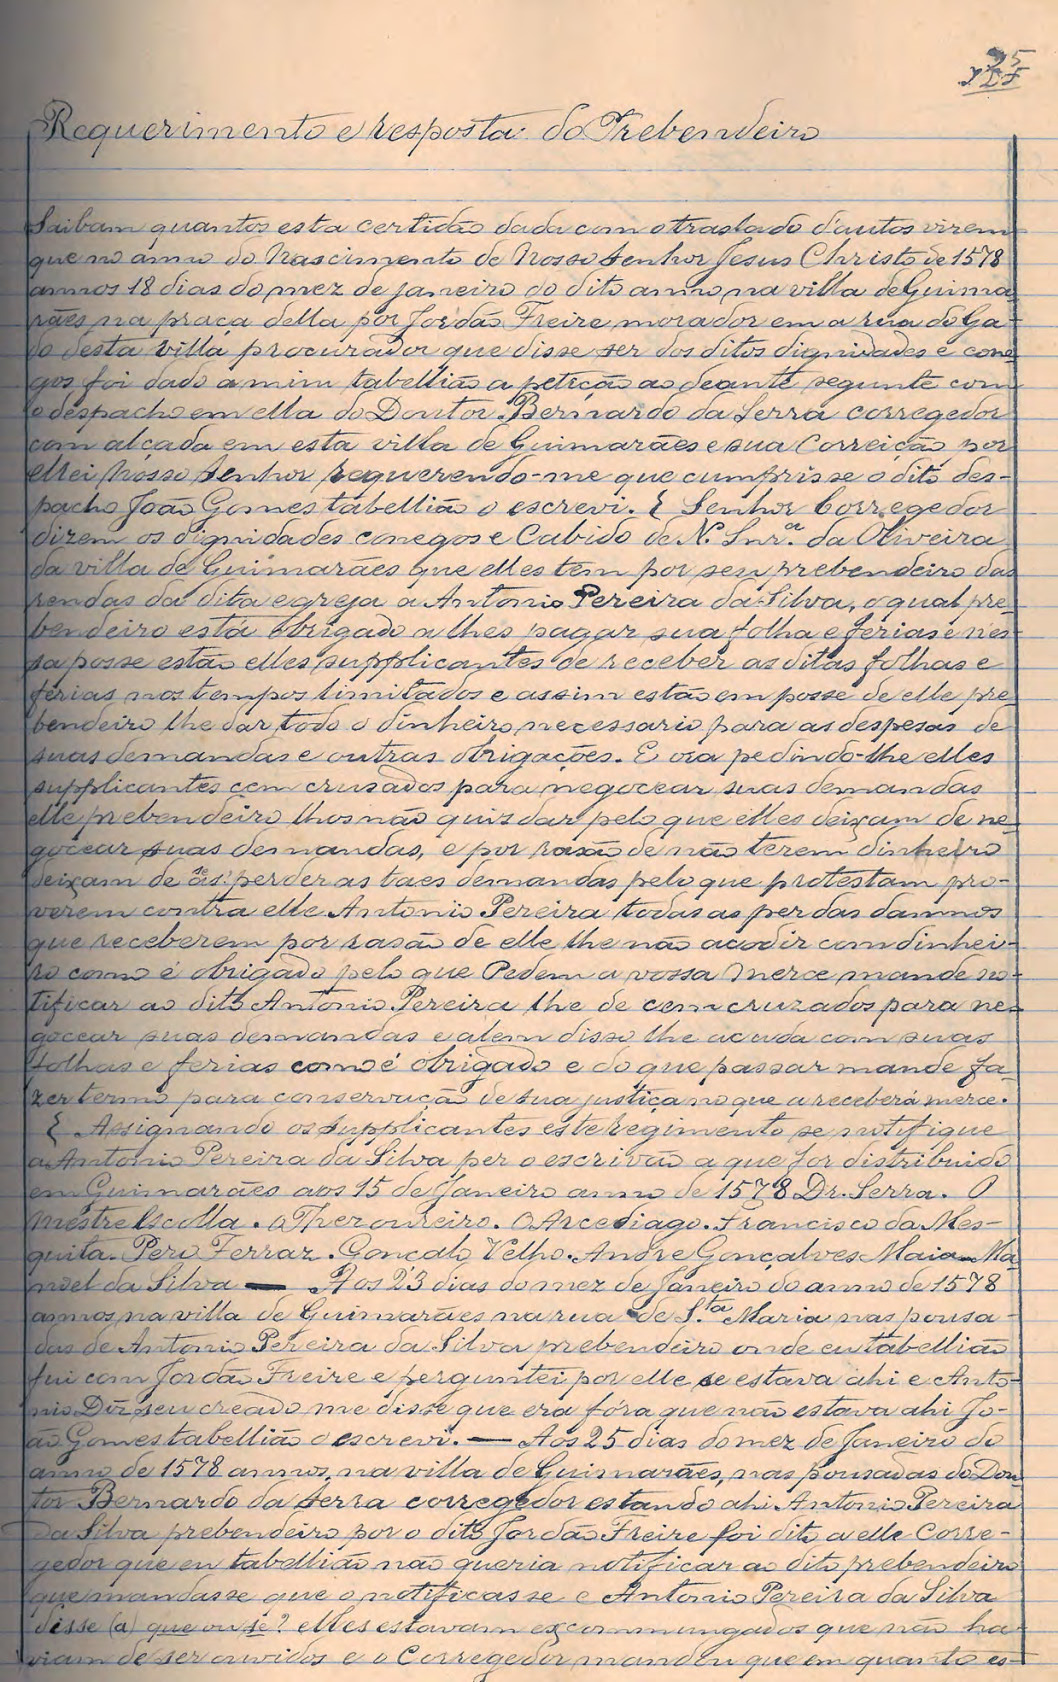 25
Requerimento e resposta do Prebendeiro
Saibam quantos esta certidão dada com o traslado d'autos virem
que no anno do Nascimento de Nosso Senhor Jesus Christo de 1578
annos 18 dias do mez de Janeiro do dito anno na villa de Guima-
rães na praça della por Jordão Freire morador em a rua do Ga-
do desta villa procurador que disse ser dos ditos dignidades e cone-
gos foi dado a mim tabellião a petição ao deante segunte com
o despacho em ella do Doutor Bernardo da Serra corregedor
com alçada em esta villa de Guimarães e sua Correição por
ellrei Nosso Senhor requerendo-me que cumprisse o dito des-
pacho João Gomes tabellião o escrevi. { Senhor Corregedor
dizem os dignidades conegos e Cabido de N. Snr.ª da Oliveira
da villa de Guimarães que elles têm por seu prebendeiro das
rendas da dita egreja a Antonio Pereira da Silva, o qual pre-
bendeiro está obrigado a lhes pagar sua folha e férias e nes-
sa posse estão elles supplicantes de receber as ditas folhas e
férias nos tempos limitados e assim estão em posse de elle pre-
bendeiro lhe dar todo o dinheiro necessario para as despesas de
suas demandas e outras obrigações. E ora pedindo-lhe elles
supplicantes cem cruzados para negocear suas demandas
elle prebendeiro lhos não quis dar pelo que elles deixam de ne-
gocear suas demandas, e por rasão de não terem dinheiro
deixam de se perder as taes demandas pelo que protestam pro-
verem contra elle Antonio Pereira todas as perdas damnos
que receberem por rasão de elle lhe não acodir com dinhei-
ro como é obrigado pelo que Pedem a vossa Merce mande no-
tificar ao dito Antonio Pereira lhe de cem cruzados para ne-
gocear suas demandas e alem disso lhe acuda com suas
folhas e ferias como é obrigado e do que passar mande fa-
zer termo para conservação de sua justiça no que a receberá merce.
{ Assignando os supplicantes este regimento se notifique
a Antonio Pereira da Silva per o escrivão a que for distribuido
em Guimarães aos 15 de Janeiro anno de 1578 Dr. Serra. O
Mestre Escolla. O Thezoureiro. O Arcediago. Francisco da Mes-
quita. Pero Ferraz. Gonçalo Velho. Andre Gonçalves Maia. Ma-
noel da Silva — Aos 23 dias do mez de Janeiro do anno de 1578
annos na villa de Guimarães na rua de S.ta Maria nas pousa-
das de Antonio Pereira da Silva prebendeiro onde eu tabellião
fui com Jordão Freire e perguntei por elle se estava ahi e Anto-
nio Diz seu creado me disse que era fóra que não estava ahi Jo-
ão Gomes tabellião o escrevi. — Aos 25 dias do mez de Janeiro do
anno de 1578 annos, na villa de Guimarães, nas pousadas do Dou-
tor Bernardo da Serra corregedor estando ahi Antonio Pereira
da Silva prebendeiro por o dito Jordão Freire foi dito a elle Corre-
gedor que eu tabellião não queria notificar ao dito prebendeiro
que mandasse que o notificasse e Antonio Pereira da Silva
disse (a) que ou se? elles estavam excommungados que não ha-
viam de ser ouvidos e o Corregedor mandou que em quanto es-